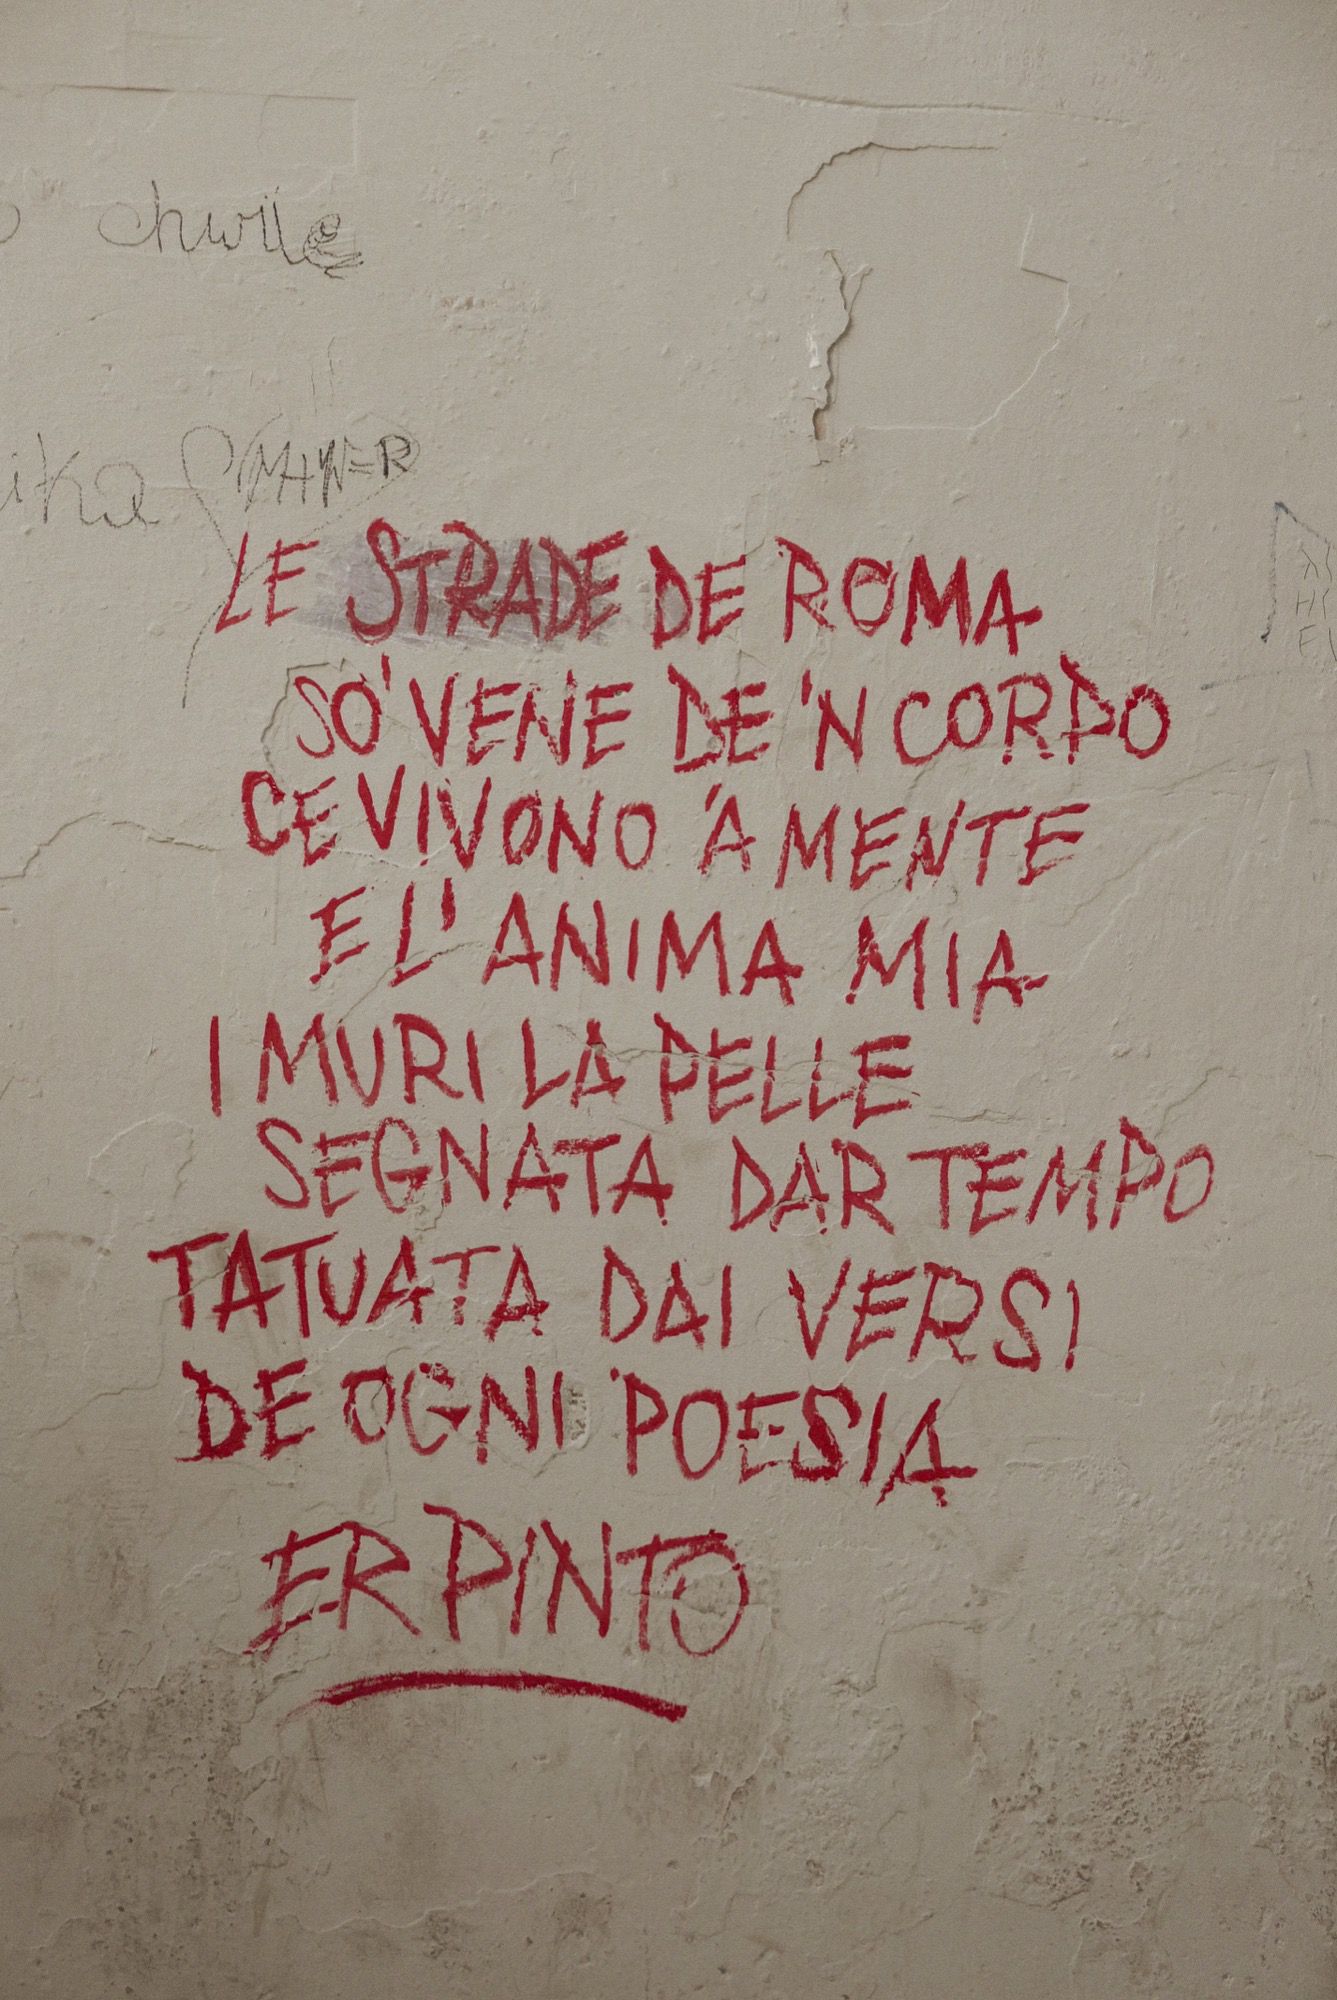 chwile
ika
LE STRADE DE ROMA
SO' VENE DE 'N CORPO
CE VIVONO 'A MENTE
E L' ANIMA MIA
I MURI LA PELLE
SEGNATA DAR TEMPO
TATUATA DAI VERSI
DE OGNI POESIA
ER PINTO